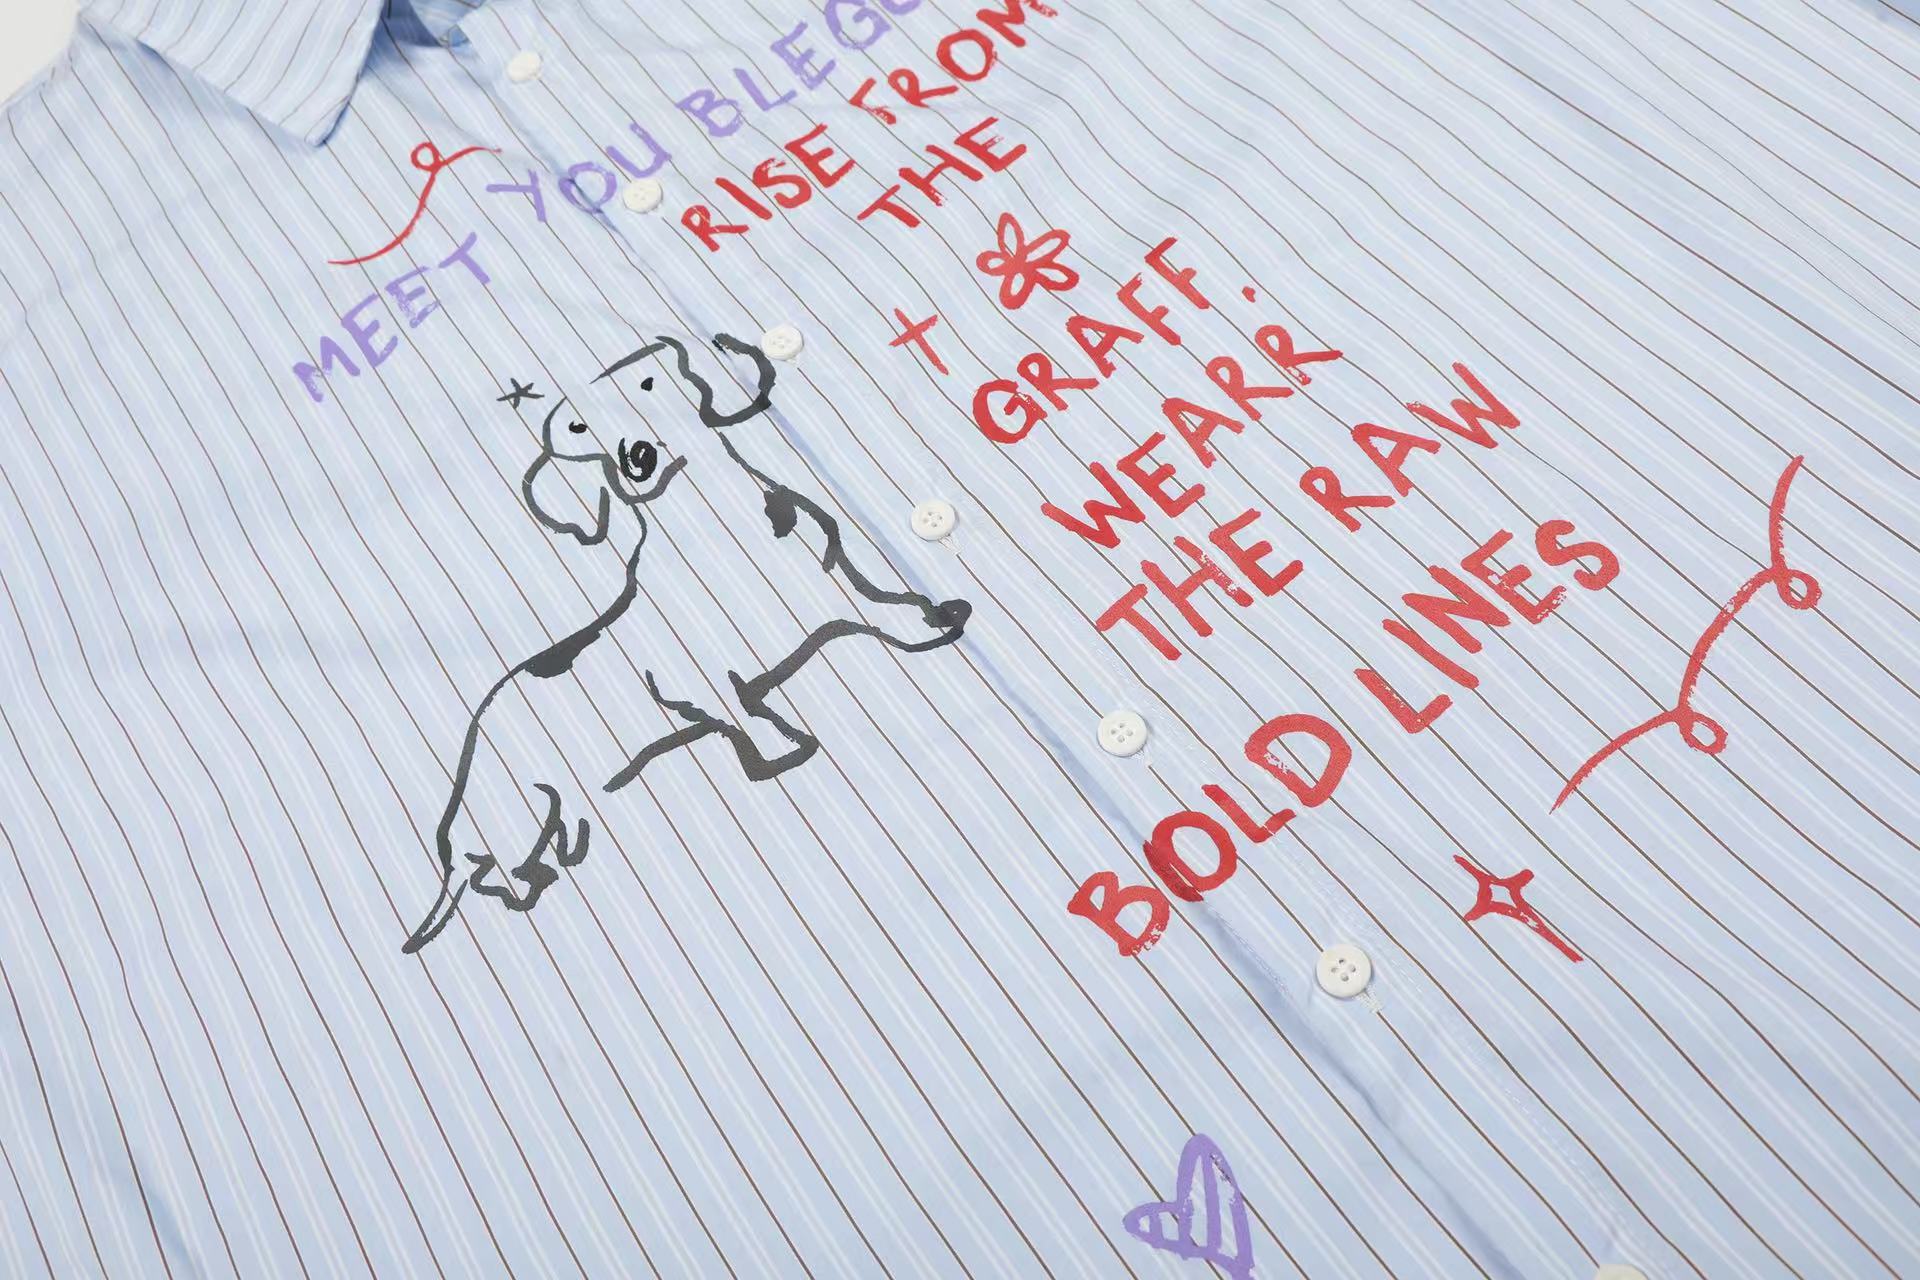 MEET YOU
RISE FROM
THE
GRAFF.
WEARR
THE RAW
BOLD LINES